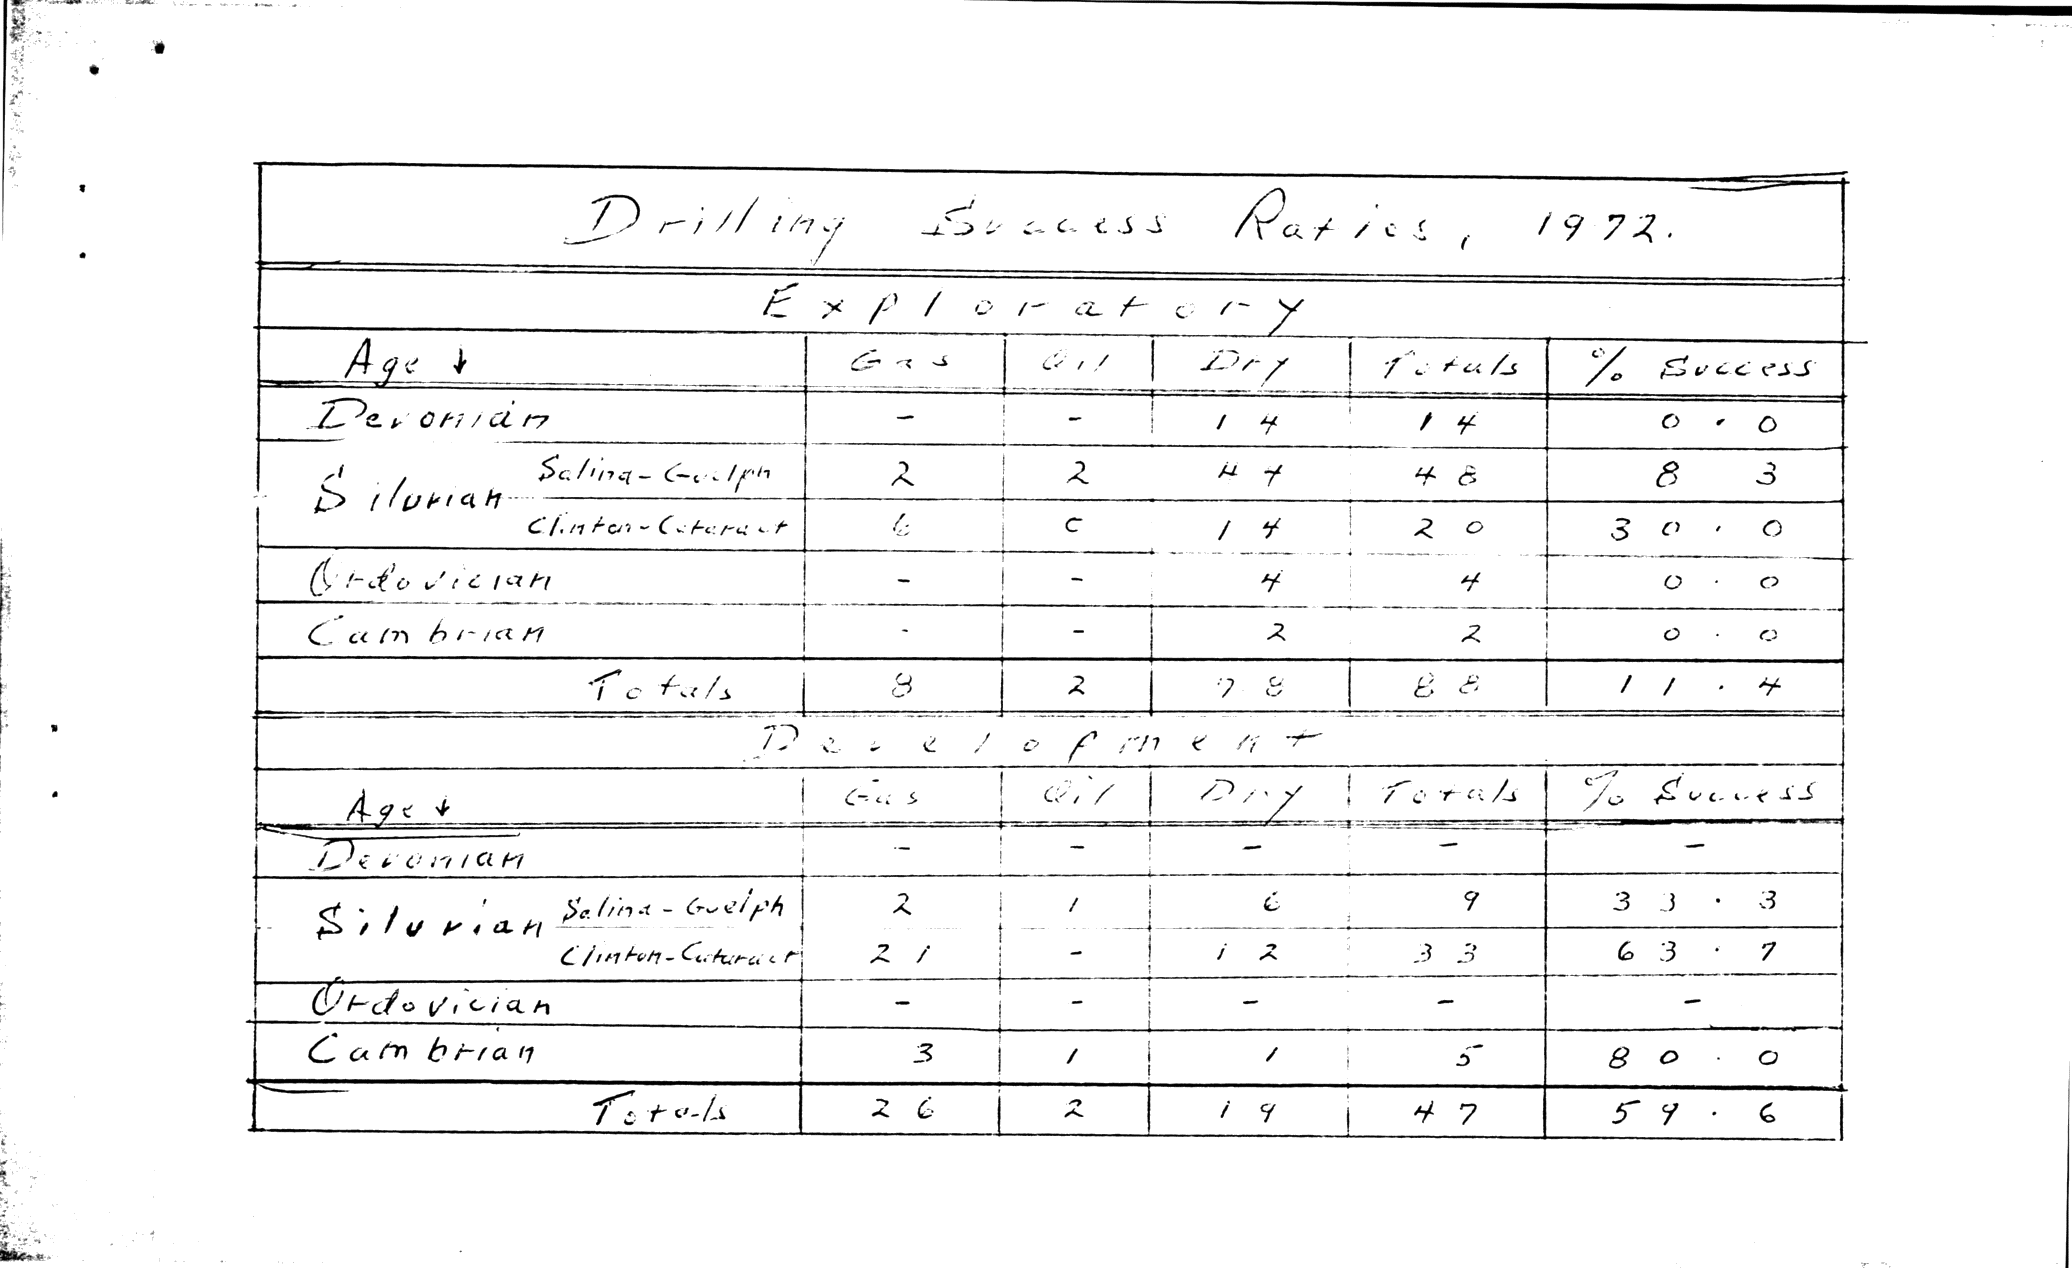 Drilling Success Ratios, 1972.
Exploratory
Age ↓ Gas Oil Dry Totals % Success
Devonian - - 14 14 0.0
Silurian Salina-Guelph 2 2 44 48 8 3
Clinton-Cataract 6 0 14 20 30.0
Ordovician - - 4 4 0.0
Cambrian - - 2 2 0.0
Totals 8 2 78 88 11.4
Development
Age ↓ Gas Oil Dry Totals % Success
Devonian - - - - -
Silurian Salina-Guelph 2 1 6 9 33.3
Clinton-Cataract 21 - 12 33 63.7
Ordovician - - - - -
Cambrian 3 1 1 5 80.0
Totals 26 2 19 47 59.6